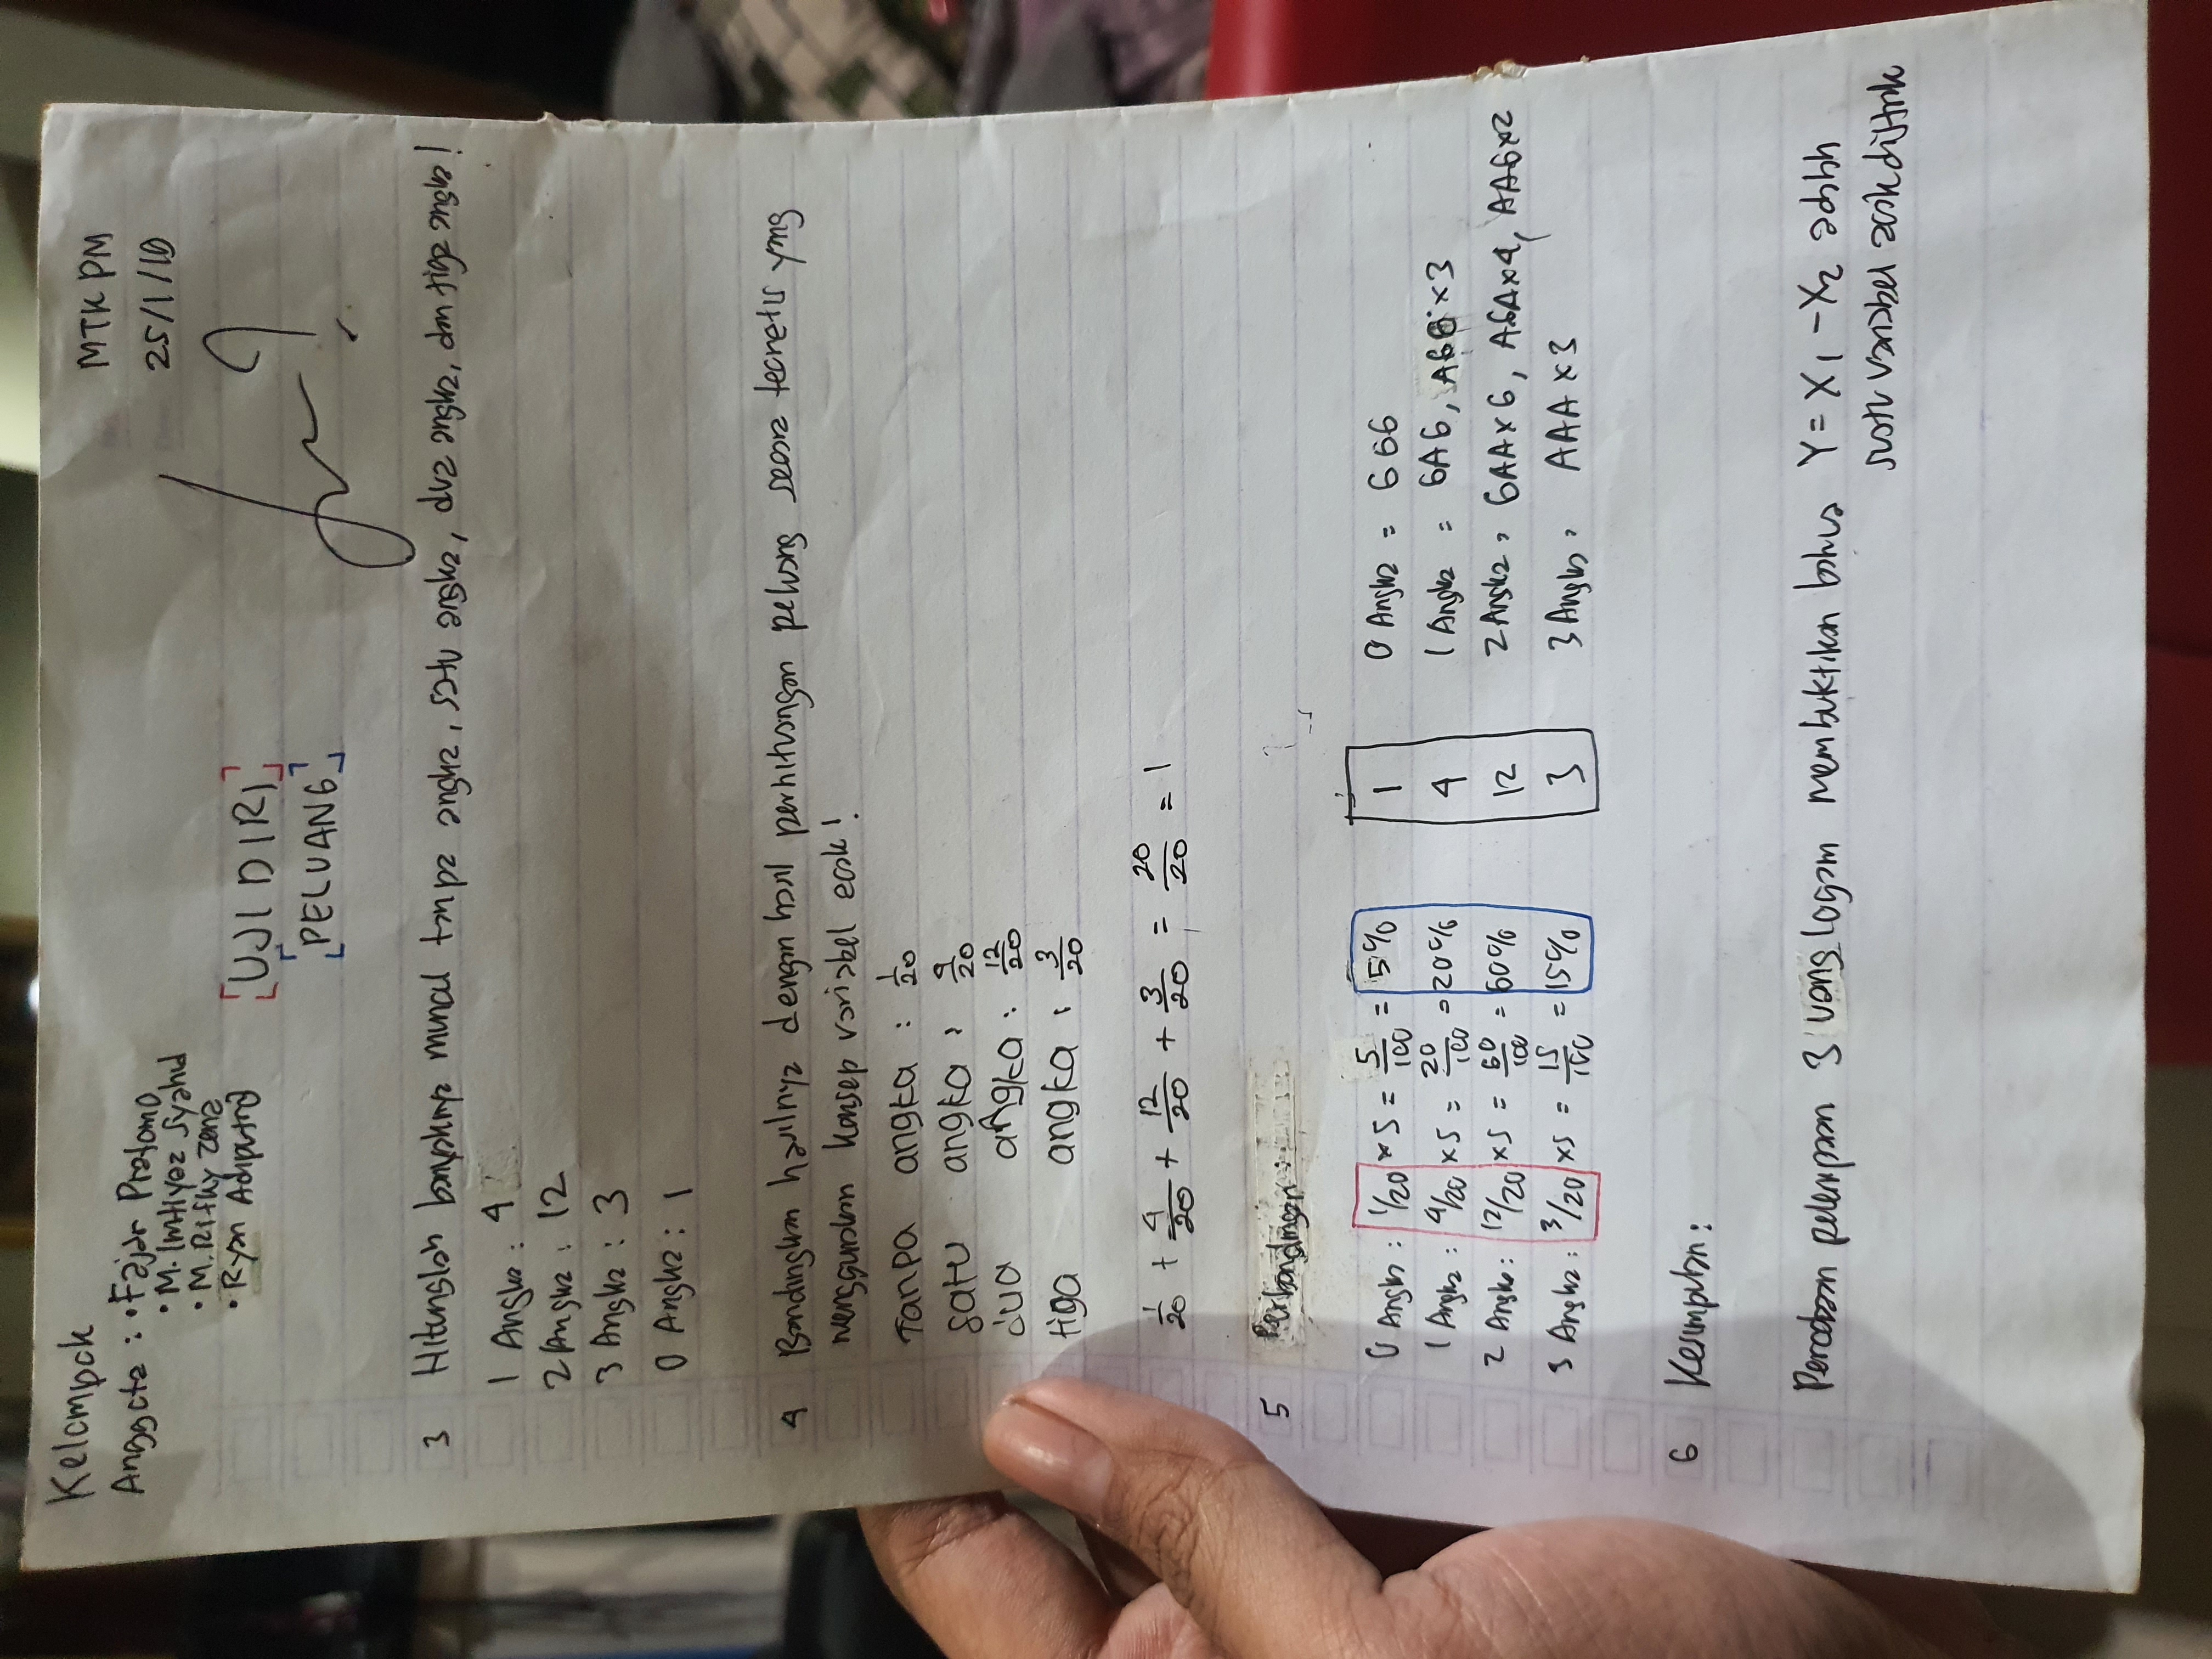 Kelompok
MTK PM
Anggota : • Fajar Pratomo
25/1/10
• M. Imtiyaz Syahd
• M. Rifky Zena
• Ryan Adiputra
[UJI DIRI]
[PELUANG]
3 Hitunglah banyaknya muncul tanpa angka, satu angka, dua angka, dan tiga angka!
1 Angka : 4
2 Angka : 12
3 Angka : 3
0 Angka : 1
4 Bandingkan hasilnya dengan hasil perhitungan peluang secara teoretis yang
menggunakan konsep variabel acak!
Tanpa angka : 1/20
Satu angka : 4/20
dua angka : 12/20
tiga angka : 3/20
1/20 + 4/20 + 12/20 + 3/20 = 20/20 = 1
5 Perbandingan :
0 Angka : 1/20 x 5 = 5/100 = 5% 1 0 Angka = GGG
1 Angka : 4/20 x 5 = 20/100 = 20% 4 1 Angka = GAG, AGG x 3
2 Angka : 12/20 x 5 = 60/100 = 60% 12 2 Angka = GAA x 6, AGA x 4, AAG x 2
3 Angka : 3/20 x 5 = 15/100 = 15% 3 3 Angka = AAA x 3
6 Kesimpulan :
Percobaan pelemparan 3 uang logam membuktikan bahwa Y = X1 - X2 adalah
suatu variabel acak diskrit